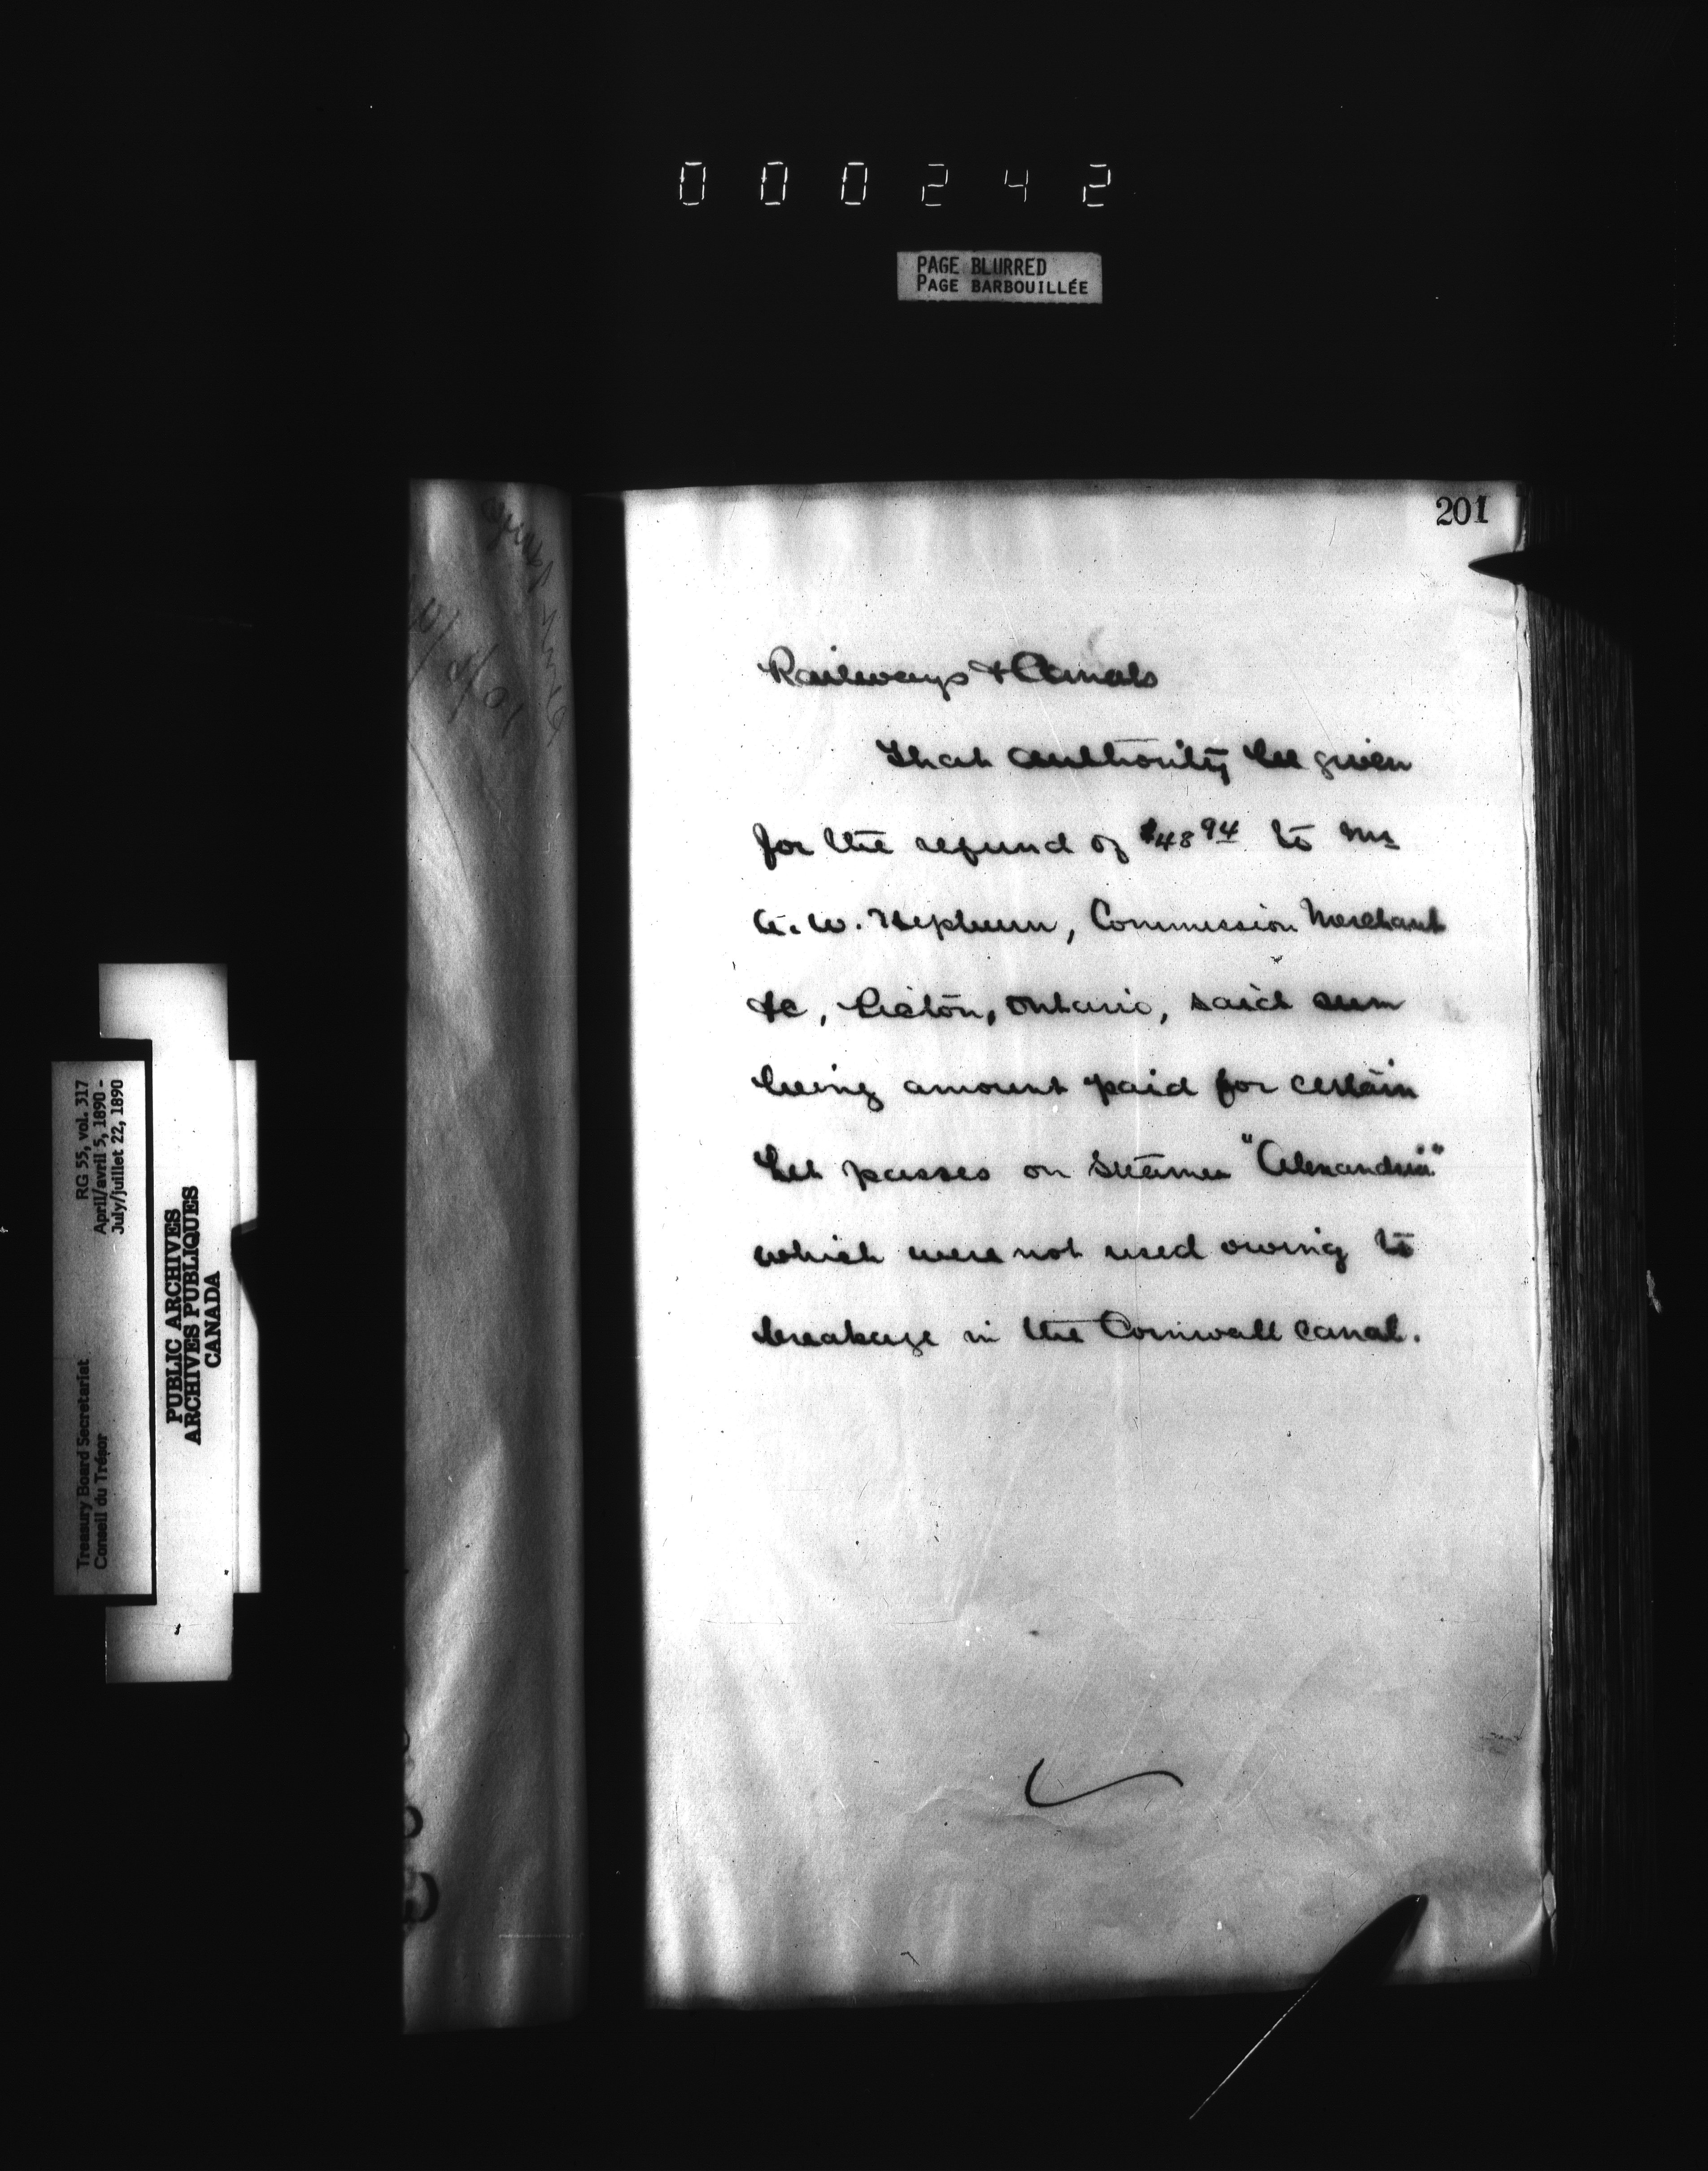 000242
PAGE BLURRED
PAGE BARBOUILLÉE
201
Railways & Canals
That authority be given
for the refund of $48 94 to Mr
A. W. Hepburn, Commission Merchant
&c, Picton, Ontario, said sum
being amount paid for certain
Let passes on Steamer "Alexandria"
which were not used owing to
breakage in the Cornwall Canal.
Treasury Board Secretariat RG 55, vol. 317
Conseil du Trésor April/avril 5, 1890 -
July/juillet 22, 1890
PUBLIC ARCHIVES
ARCHIVES PUBLIQUES
CANADA